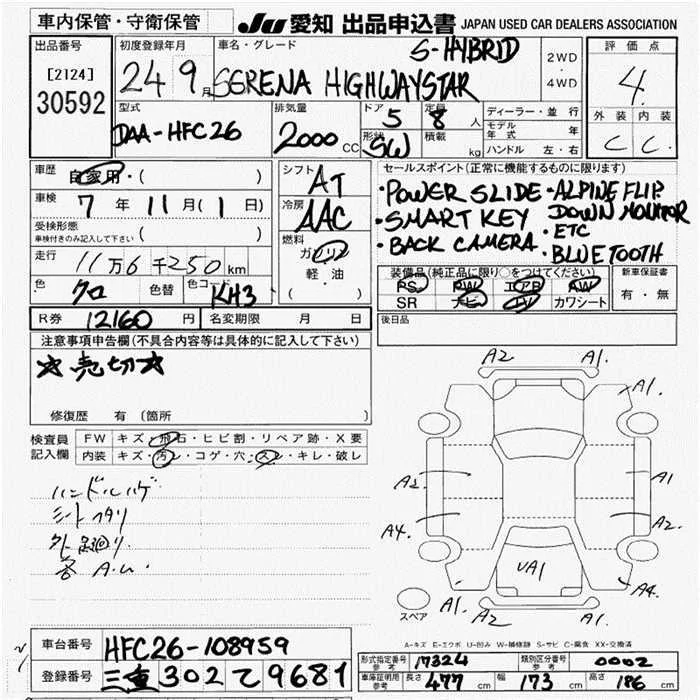 車内保管・守衛保管
JU 愛知 出品申込書 JAPAN USED CAR DEALERS ASSOCIATION
出品番号
[2124]
30592
初度登録年月
24 9月
車名・グレード
S-HYBRID
SERENA HIGHWAYSTAR
2WD
・
4WD
評価点
4
外装 内装
C C
型式
DAA-HFC26
排気量
2000 CC
ドア 5
定員 8 人
形状 SW
積載 kg
ディーラー・並行
モデル年式 年
ハンドル 左・右
車歴
自家用・( )
車検 7年 11月 (1日)
受検形態
車検付きのみ記入して下さい ( )
走行
11万6千250km
色 クロ 色替 色コード KH3
シフト
AT
冷房
AAC
燃料
ガソリン
軽油
( )
セールスポイント(正常に機能するものに限ります)
・POWER SLIDE ・ALPINE FLIP
・SMART KEY DOWN MONITOR
・BACK CAMERA ・ETC
・BLUETOOTH
装備品(純正品に限り○をつけてください)
PS PW エアB AW
SR ナビ TV カワシート
新車保証書
有・無
R券 12160円 名変期限 月 日
後日品
注意事項申告欄(不具合内容等は具体的に記入して下さい)
☆売切☆
修復歴 有(箇所 )
検査員記入欄
FW キズ・飛石・ヒビ割・リペア跡・X要
内装 キズ・汚レ・コゲ・穴・スレ・キレ・破レ
ハンドルハゲ
シートヘタリ
外 足廻り
答 A.U.
A2 A1.
A1.
A2 A1
A4. A2
UA1
A1. A4.
A2 A1.
スペア
A-キズ E-エクボ U-凹み W-補修跡 S-サビ C-腐食 XX-交換済
車台番号 HFC26-108959
登録番号 三重 302 て 9681
形式指定番号参考 17324 類別区分番号参考 0002
車庫証明用参考 長さ 477cm 幅 173cm 高さ 186cm